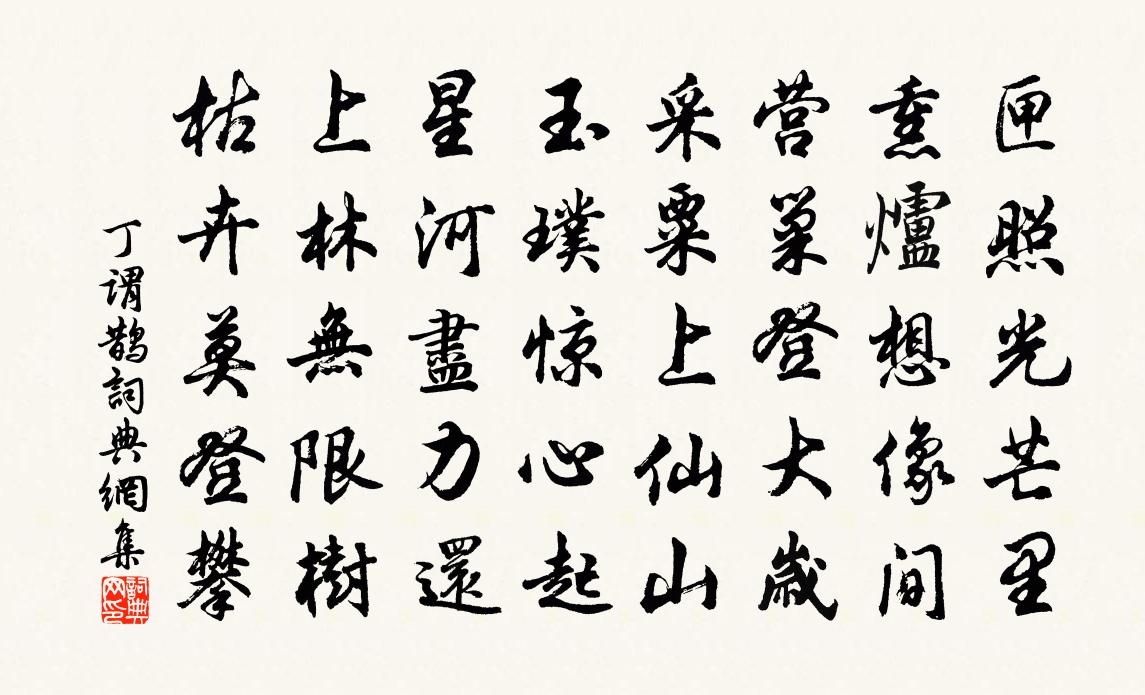 匣照光芒里
熏爐想像间
营巢登大歲
采粟上仙山
玉璞惊心起
星河盡力還
上林無限樹
枯卉莫登攀
丁谓鹊詞典網集
詞典
网印